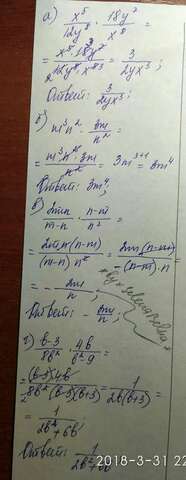 а) x⁵/12y⁸ · 18y²/x⁸ =
= x⁵·18y²/12y⁸·x⁸ = 3/2yx³ ;
Ответ: 3/2yx³
б) m³n² · 3m/n² =
= m³n²·3m/n² = 3m³⁺¹ = 3m⁴
Ответ: 3m⁴;
в) 2mn/m-n · n-m/n² =
= 2mn(n-m)/(m-n)n² = 2m(n-m)/-(n-m)·n
= - 2m/n ;
Ответ: - 2m/n ;
г) b-3/8b² · 4b/b²-9 =
= (b-3)4b/8b²(b-3)(b+3) = 1/2b(b+3) =
= 1/2b²+6b
Ответ: 1/2b²+6b
2018-3-31 22